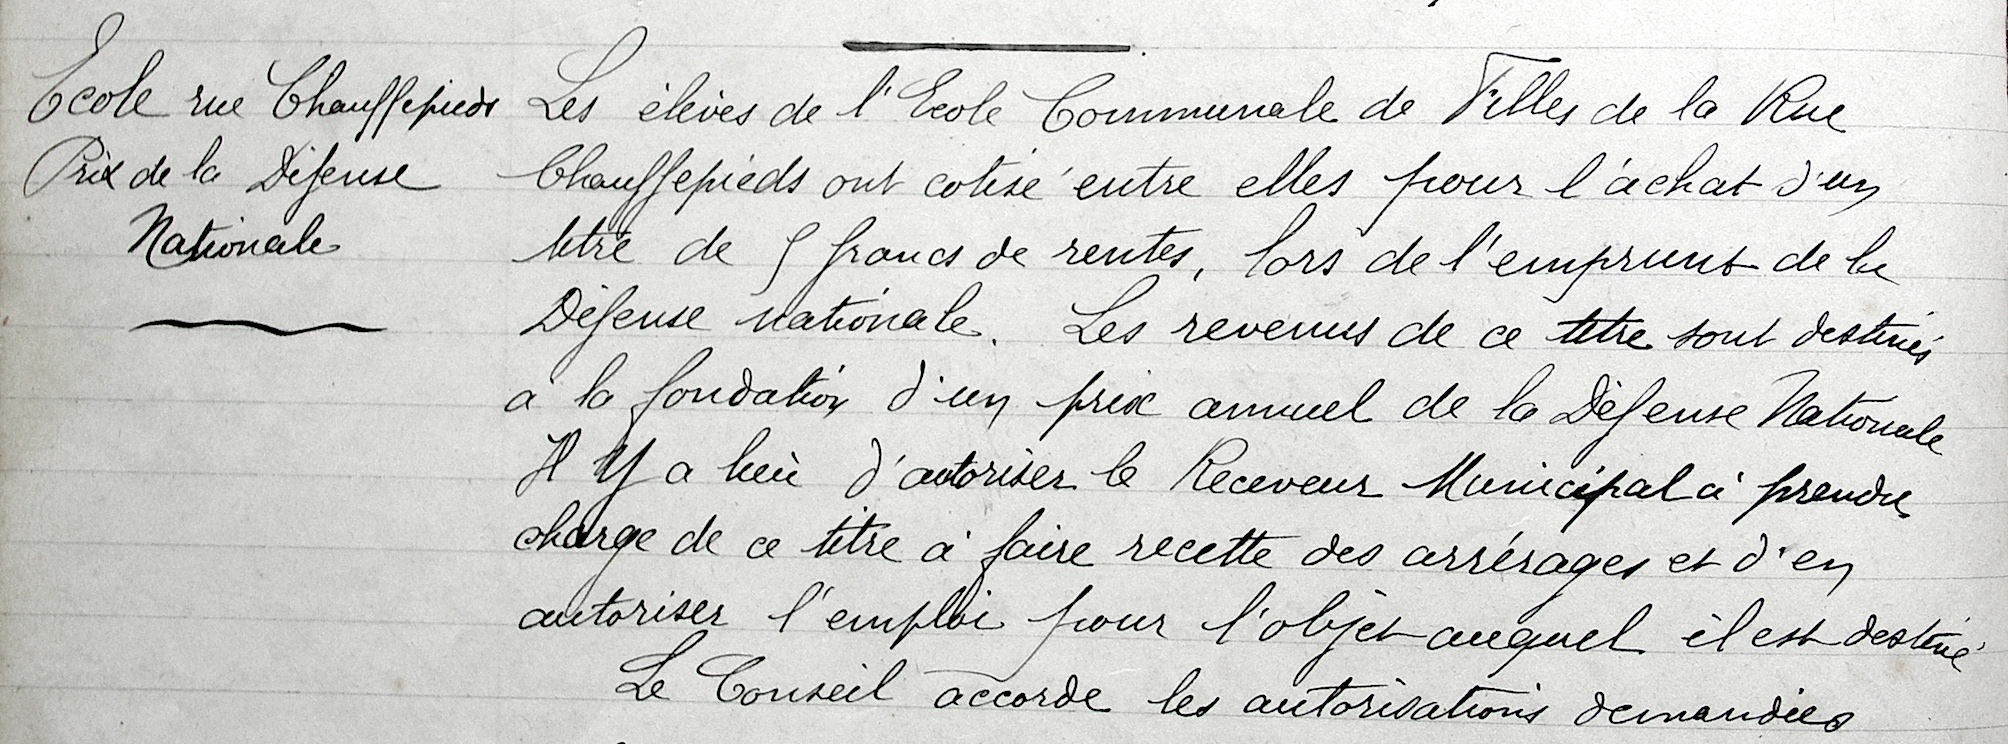 Ecole rue Chauffepieds
Prix de la Défense
Nationale
Les élèves de l'Ecole Communale de Filles de la Rue
Chauffepieds ont cotisé entre elles pour l'achat d'un
titre de 5 francs de rentes, lors de l'emprunt de la
Défense nationale. Les revenus de ce titre sont destinés
à la fondation d'un prix annuel de la Défense Nationale
Il y a lieu d'autoriser le Receveur Municipal à prendre
charge de ce titre à faire recette des arrérages et d'en
autoriser l'emploi pour l'objet auquel il est destiné
Le Conseil accorde les autorisations demandées